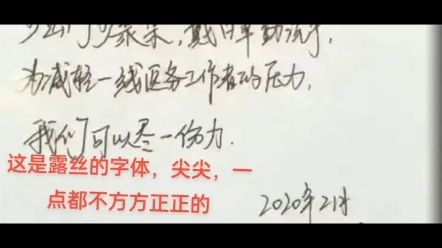 少出门少聚集,戴口罩勤洗手,
为减轻一线医务工作者的压力,
我们可以尽一份力.
这是露丝的字体，尖尖，一
点都不方方正正的
2020年2月